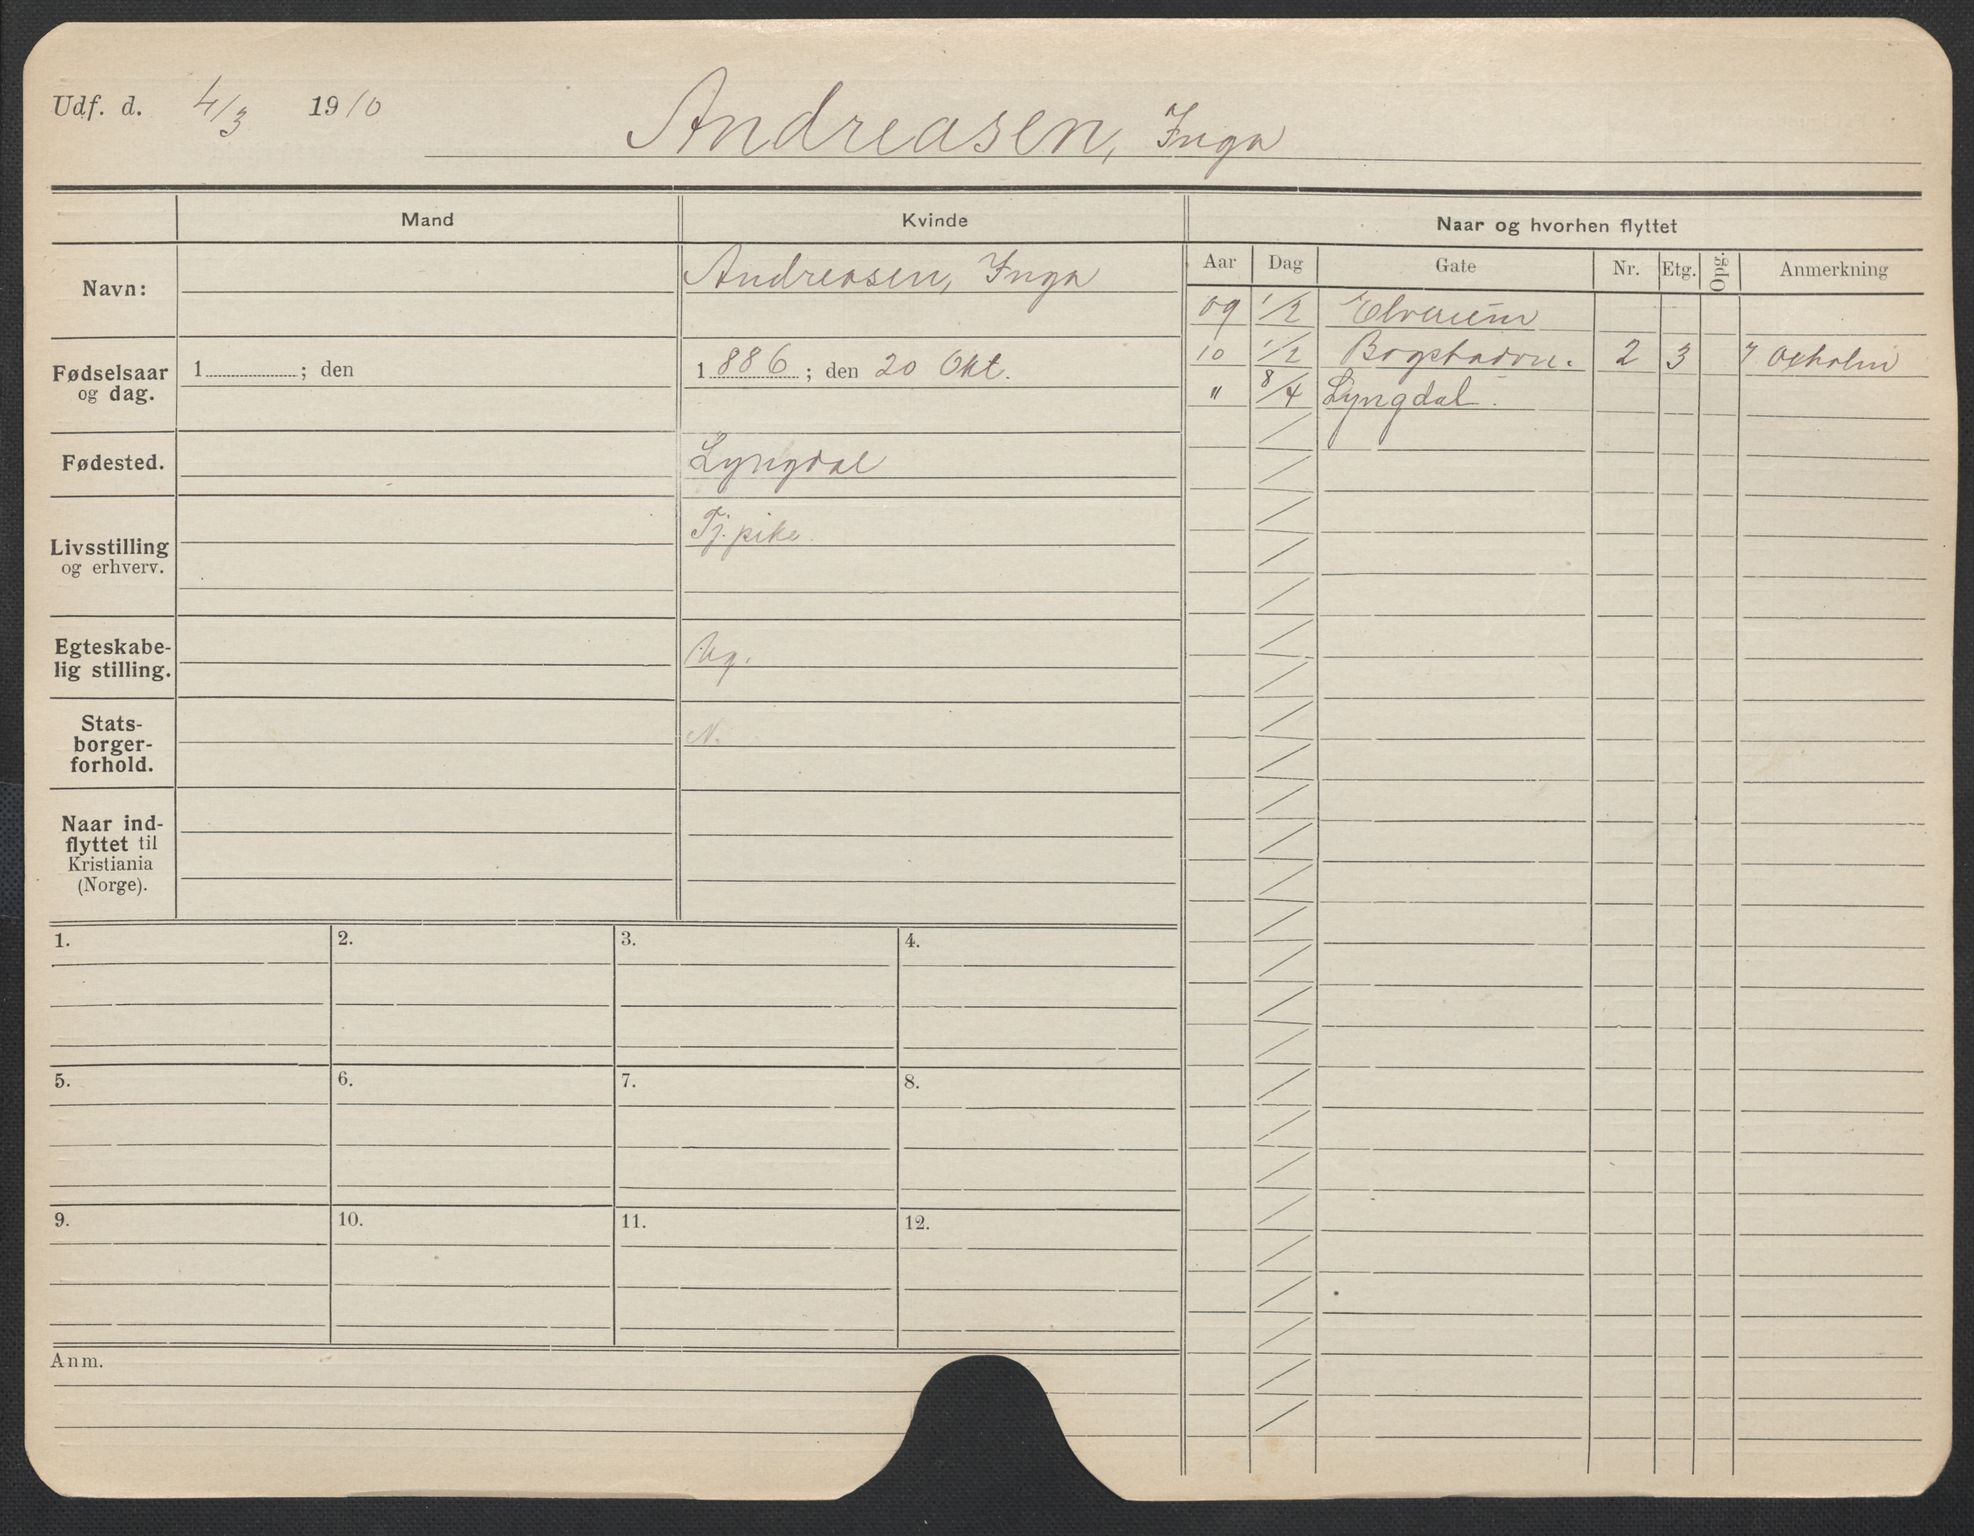 Udf. d. 4/3 1910
Andreasen, Inga
Mand
Kvinde
Naar og hvorhen flyttet
Aar Dag Gate Nr. Etg. Opg. Anmerkning
Navn:
Andreasen, Inga
Fødselsaar
og dag.
1 ; den
1886; den 20 Okt.
Fødested.
Lyngdal
Livsstilling
og erhverv.
Tj. pike.
Egteskabe-
lig stilling.
Ug.
Stats-
borger-
forhold.
N.
Naar ind-
flyttet til
Kristiania
(Norge).
09 1/2 Elverum
10 1/2 Bogstadvn. 2 3 Oxholm
" 8/4 Lyngdal.
1. 2. 3. 4.
5. 6. 7. 8.
9. 10. 11. 12.
Anm.